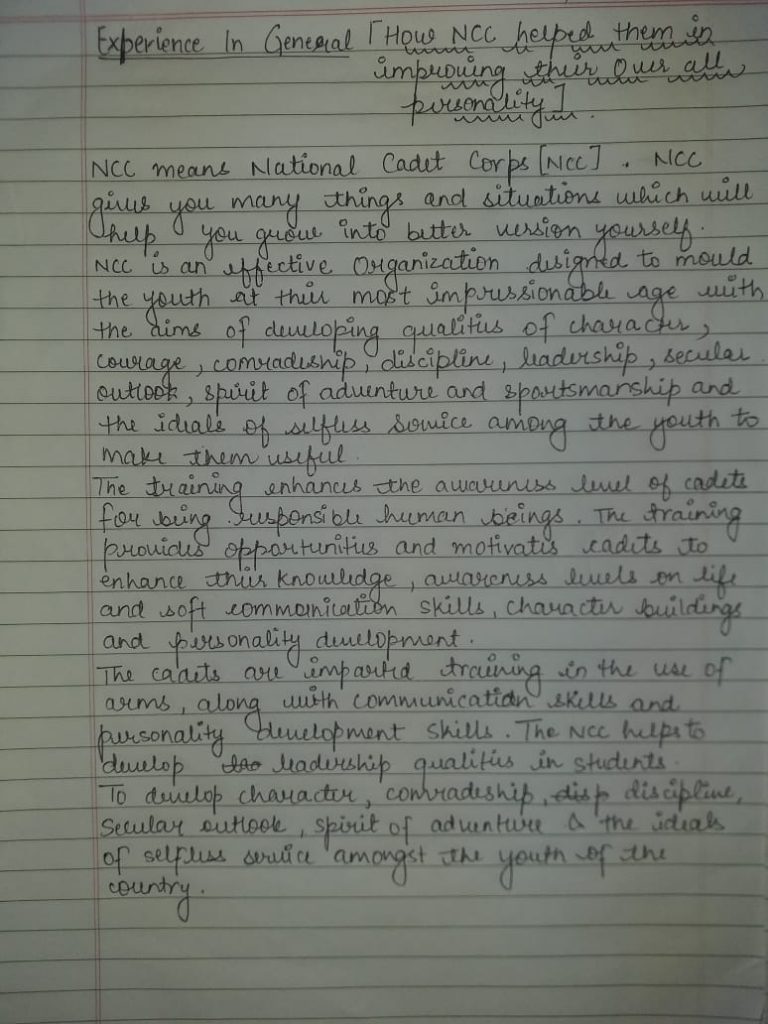 Experience In General [How NCC helped them in
improving their Over all
personality].
NCC means National Cadet Corps [NCC]. NCC
gives you many things and situations which will
help you grow into better version yourself.
NCC is an effective Organization designed to mould
the youth at their most impressionable age with
the aims of developing qualities of character,
courage, comradeship, discipline, leadership, secular
outlook, spirit of adventure and sportsmanship and
the ideals of selfless service among the youth to
make them useful.
The training enhances the awareness level of cadets
for being responsible human beings. The training
provides opportunities and motivates cadets to
enhance their knowledge, awareness levels on life
and soft communication skills, character buildings
and personality development.
The cadets are imparted training in the use of
arms, along with communication skills and
personality development skills. The NCC helps to
develop leadership qualities in students.
To develop character, comradeship, disp discipline,
Secular outlook, spirit of adventure & the ideals
of selfless service amongst the youth of the
country.